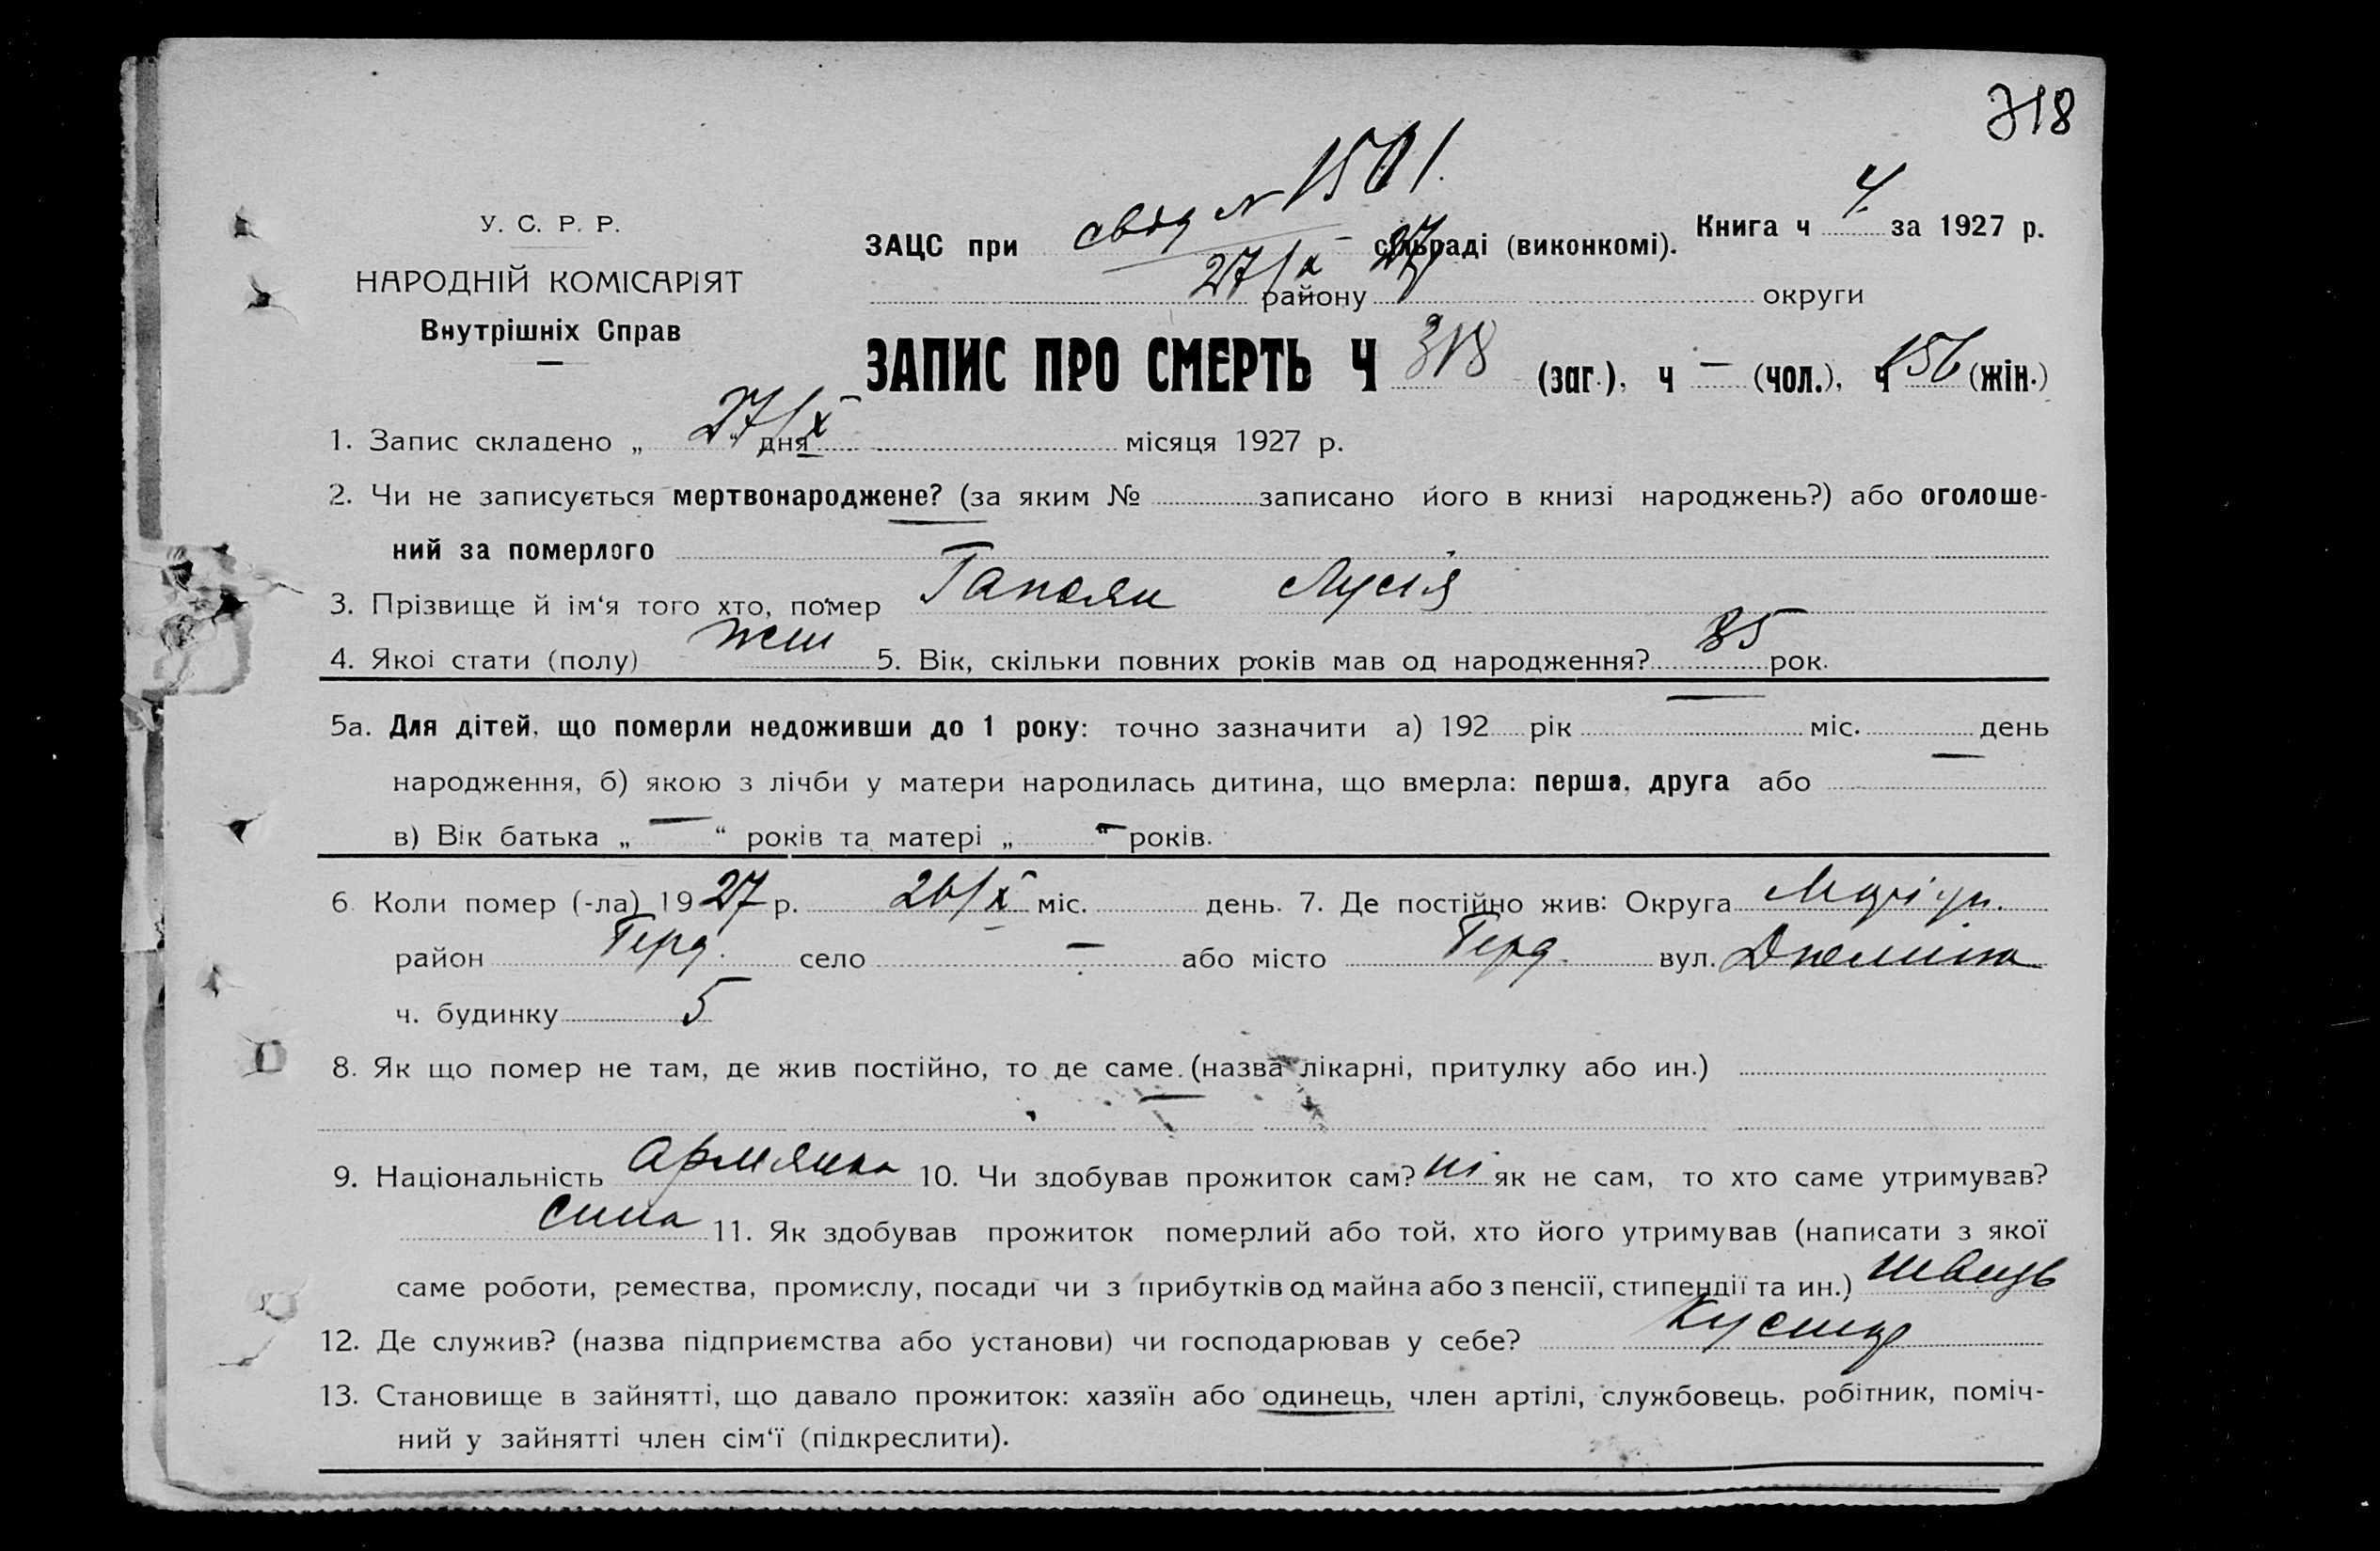 318
свід № 1501.
У. С. Р. Р.
ЗАЦС при 27/X – 27 сільраді (виконкомі). Книга ч 4 за 1927 р.
НАРОДНІЙ КОМІСАРІЯТ
району округи
Внутрішніх Справ
ЗАПИС ПРО СМЕРТЬ Ч 318 (заг.), ч — (чол.), ч 156 (жін.)
1. Запис складено „ 27/X “ дня місяця 1927 р.
2. Чи не записується мертвонароджене? (за яким № записано його в книзі народжень?) або оголоше-
ний за померлого —
3. Прізвище й ім‘я того хто, помер Гапоян Лусія
4. Якої стати (полу) жін 5. Вік, скільки повних років мав од народження? 85 рок.
5а. Для дітей, що померли недоживши до 1 року: точно зазначити а) 192 рік — міс. день
народження, б) якою з лічби у матери народилась дитина, що вмерла: перша, друга або —
в) Вік батька „ — “ років та матері „ — “ років.
6 Коли помер (-ла) 1927 р. 26/X міс. день. 7. Де постійно жив: Округа Маріуп.
район село — або місто вул.
ч. будинку 5
8. Як що помер не там, де жив постійно, то де саме (назва лікарні, притулку або ин.)
—
9. Національність Армянка 10. Чи здобував прожиток сам? ні як не сам, то хто саме утримував?
сина 11. Як здобував прожиток померлий або той, хто його утримував (написати з якої
саме роботи, ремества, промислу, посади чи з прибутків од майна або з пенсії, стипендії та ин.) швець
12. Де служив? (назва підприємства або установи) чи господарював у себе?
13. Становище в зайнятті, що давало прожиток: хазяїн або одинець, член артілі, службовець, робітник, поміч-
ний у зайнятті член сім‘ї (підкреслити).